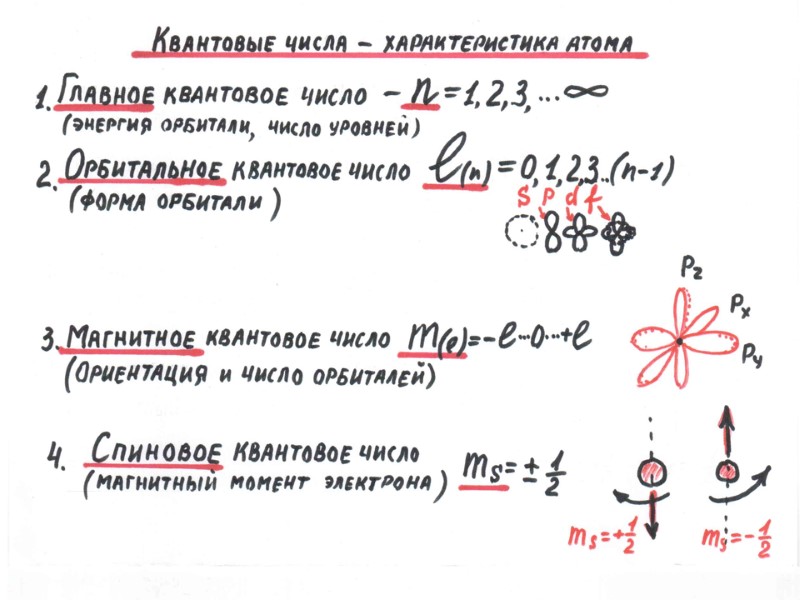 Квантовые числа – характеристика атома
1. Главное квантовое число – n = 1, 2, 3, ... ∞
(энергия орбитали, число уровней)
2. Орбитальное квантовое число l(n) = 0, 1, 2, 3..(n-1)
(форма орбитали)
s p d f
Pz
Px
Py
3. Магнитное квантовое число m(l) = -l...0...+l
(ориентация и число орбиталей)
4. Спиновое квантовое число ms = ± 1/2
(магнитный момент электрона)
ms = +1/2
ms = -1/2